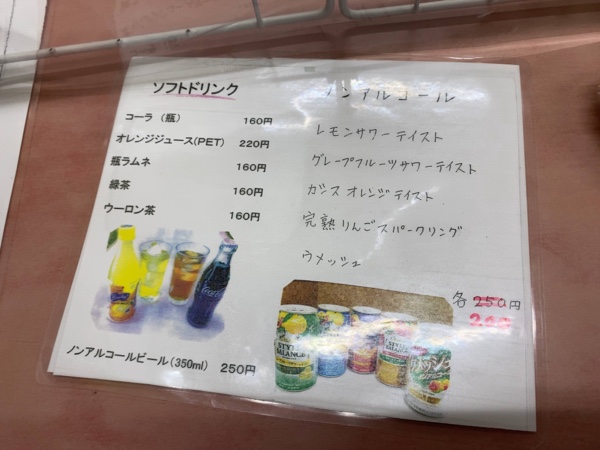 ソフトドリンク
コーラ（瓶） 160円
オレンジジュース(PET) 220円
瓶ラムネ 160円
緑茶 160円
ウーロン茶 160円
ノンアルコールビール(350ml) 250円
ノンアルコール
レモンサワーテイスト
グレープフルーツサワーテイスト
カシスオレンジテイスト
完熟りんごスパークリング
ウメッシュ
各 250円